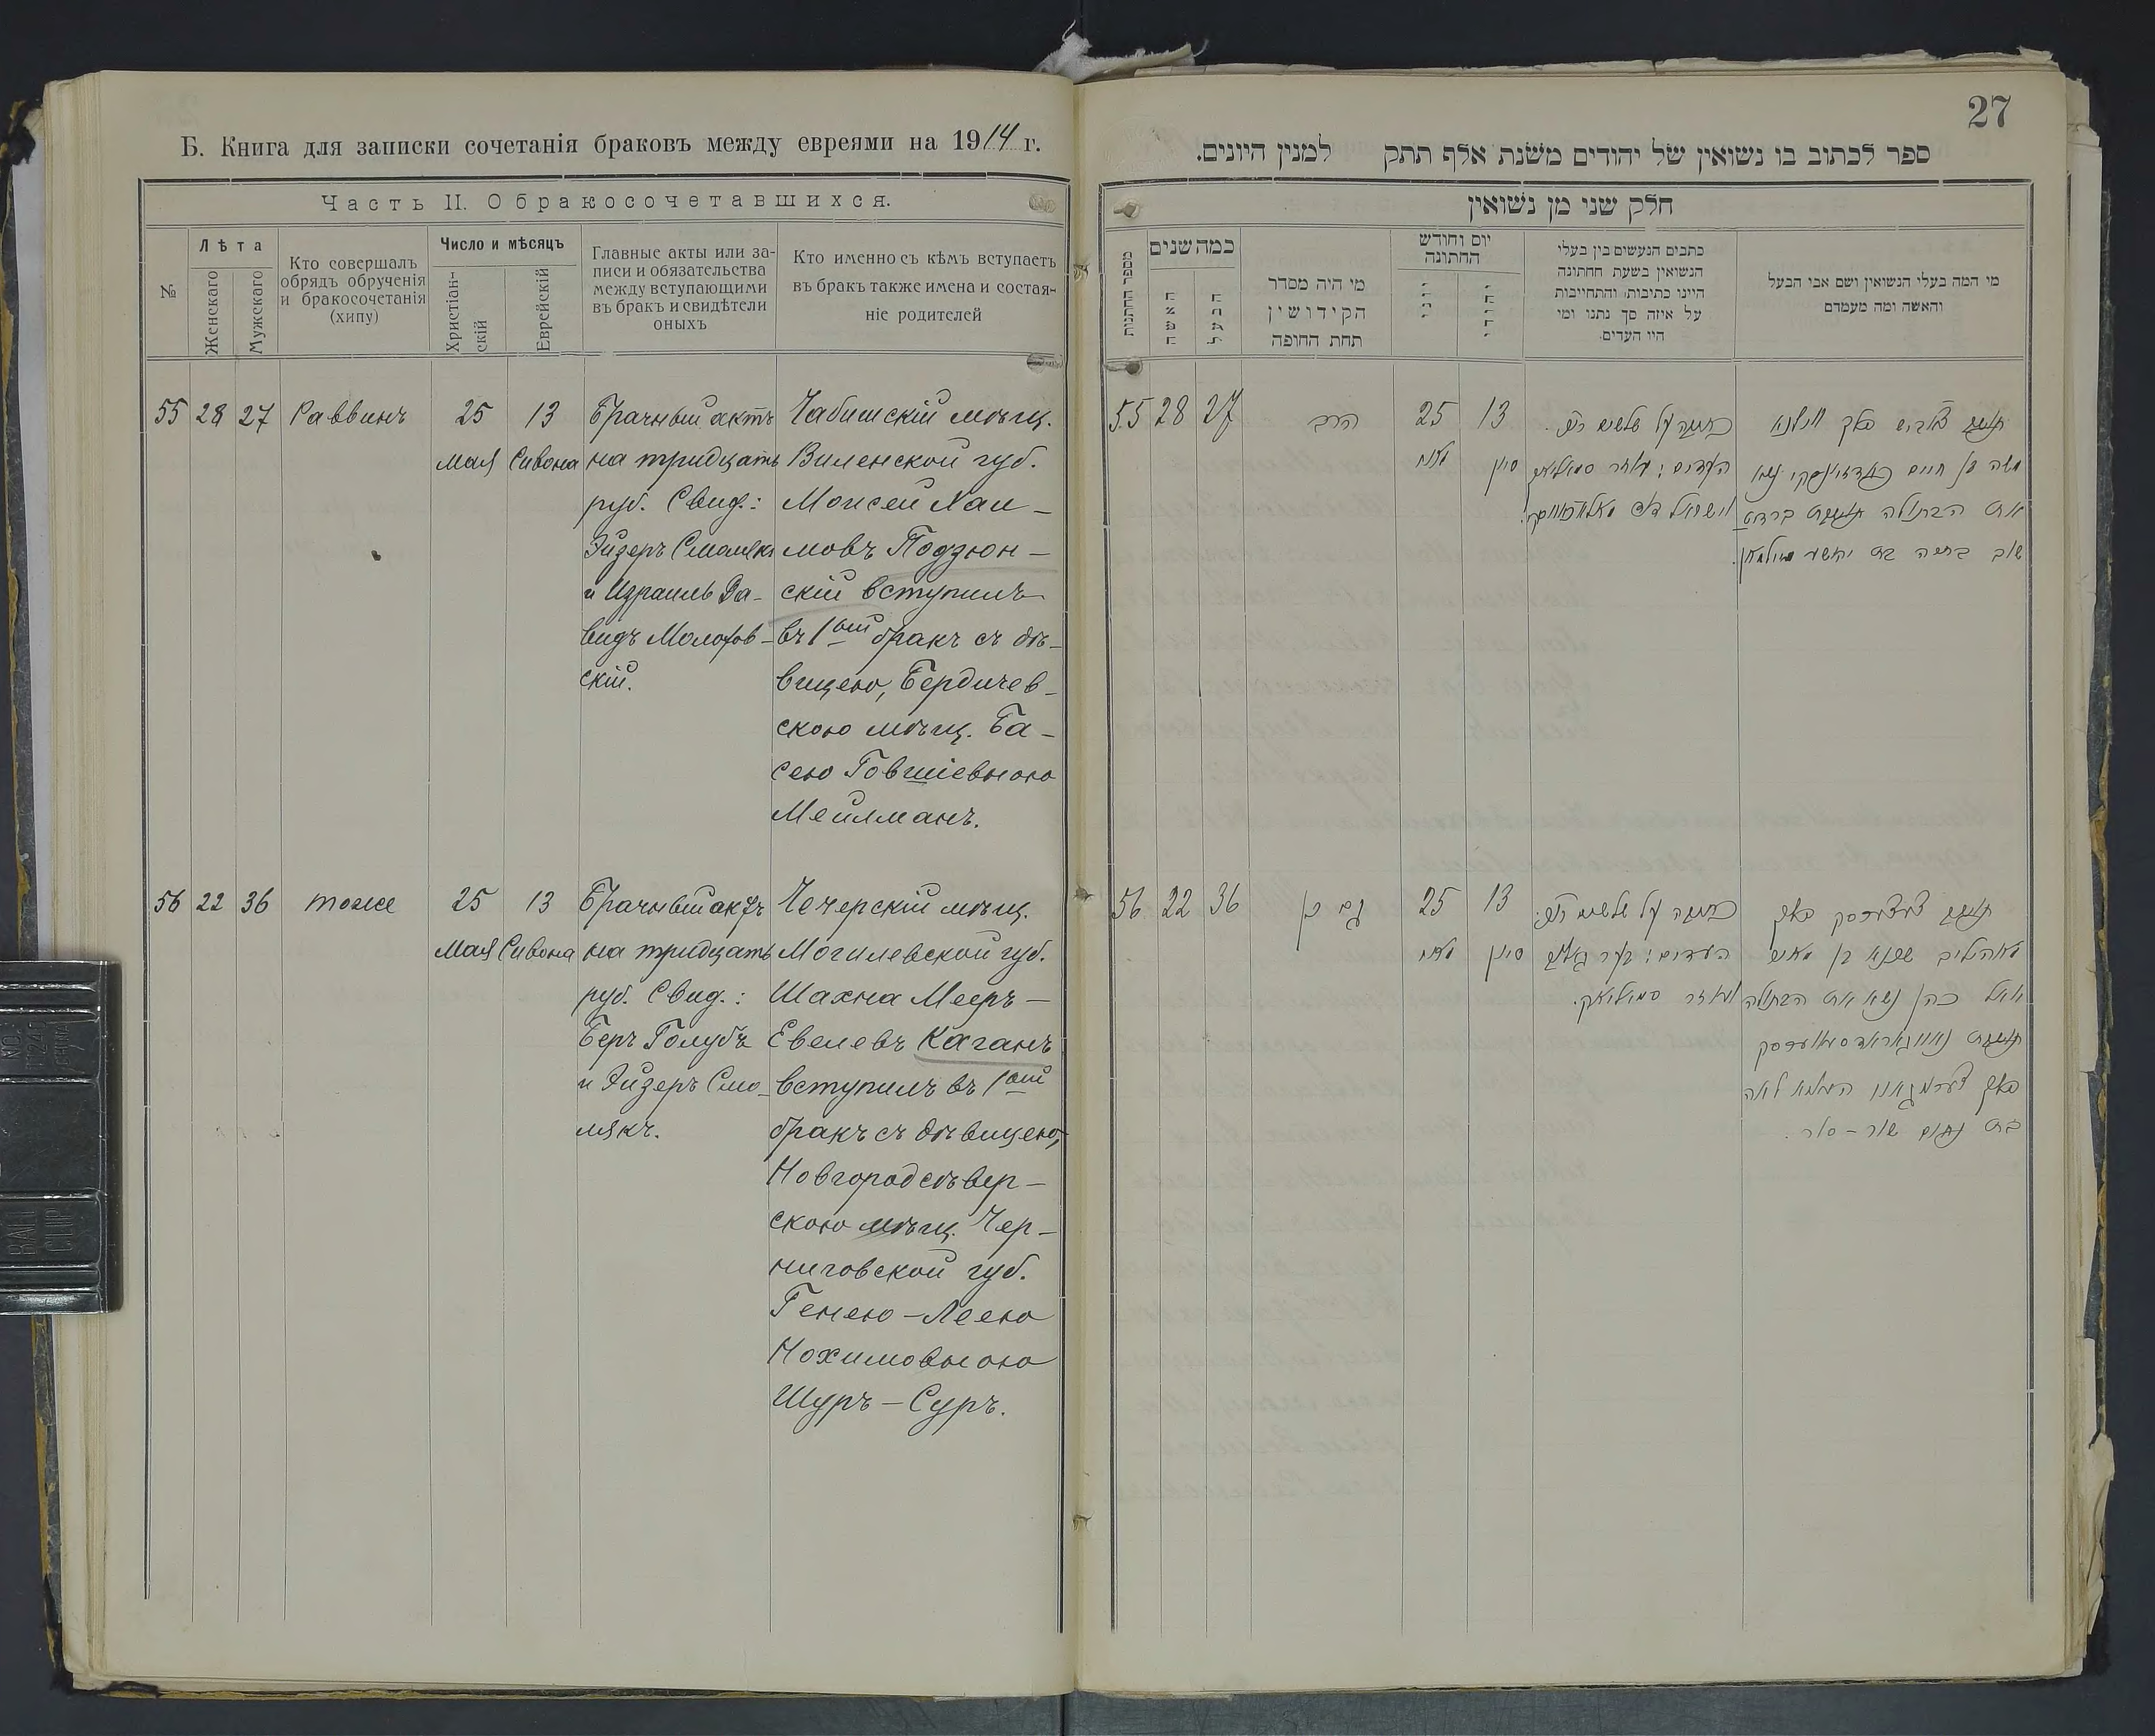 Б. Книга для записки сочетанія браковъ между евреями на 1914 г.
Часть II. О бракосочетавшихся.
№
Лѣта
Женскаго
Мужскаго
Кто совершалъ
обрядъ обрученія
и бракосочетанія
(хипу)
Число и мѣсяцъ
Христіан-
скій
Еврейскій
Главные акты или за-
писи и обязательства
между вступающими
въ бракъ и свидѣтели
оныхъ
Кто именно съ кѣмъ вступаетъ
въ бракъ также имена и состоя-
ніе родителей
55 28 27 Раввинъ 25 13
Мая Сивона
Брачный актъ
на тридцать
руб. Свид.:
Эйзеръ Смолякъ
и Израиль Да-
видъ Молотов-
скій.
Чабишскій мѣщ.
Виленской губ.
Моисей Хаи-
мовъ Подзюн-
скій вступилъ
въ 1ый бракъ съ дѣ-
вицею, Бердичев-
скою мѣщ. Ба-
сею Говшіевною
Мейлманъ.
56 22 36 тоже 25 13
Мая Сивона
Брачный актъ
на тридцать
руб. Свид.:
Беръ Голубъ
и Эйзеръ Смо-
лякъ.
Чечерскій мѣщ.
Могилевской губ.
Шахна Мееръ-
Евелевъ Каганъ
вступилъ въ 1ый
бракъ съ дѣвицею,
Новгородсѣвер-
скою мѣщ. Чер-
ниговской губ.
Генею-Леею
Нохимовною
Шуръ-Суръ.
27
ספר לכתוב בו נשואין של יהודים משנת אלף תתק למנין היונים.
חלק שני מן נשואין
מספר החתונות
כמה שנים
האשה
הבעל
מי היה מסדר
הקידושין
תחת החופה
יום וחודש
החתונה
יוני
יהודי
כתבים הנעשים בין בעלי
הנשואין בשעת החתונה
היינו כתיבות, והתחייבות
על איזה סך נתנו ומי
היו העדים.
מי המה בעלי הנשואין ושם אבי הבעל
והאשה ומה מעמדם
55 28 27 הרב 25 13
מאי סיון
כתובה על שלשים
העדים:
וישראל דוד
משה בן חיים
את הבתולה
בת יהושע
56 22 36 גם כן 25 13
מאי סיון
כתובה על שלשים
העדים:
שכנא בן מאיר
כהן נשא את הבתולה
לאה
בת נחום שור-סור.